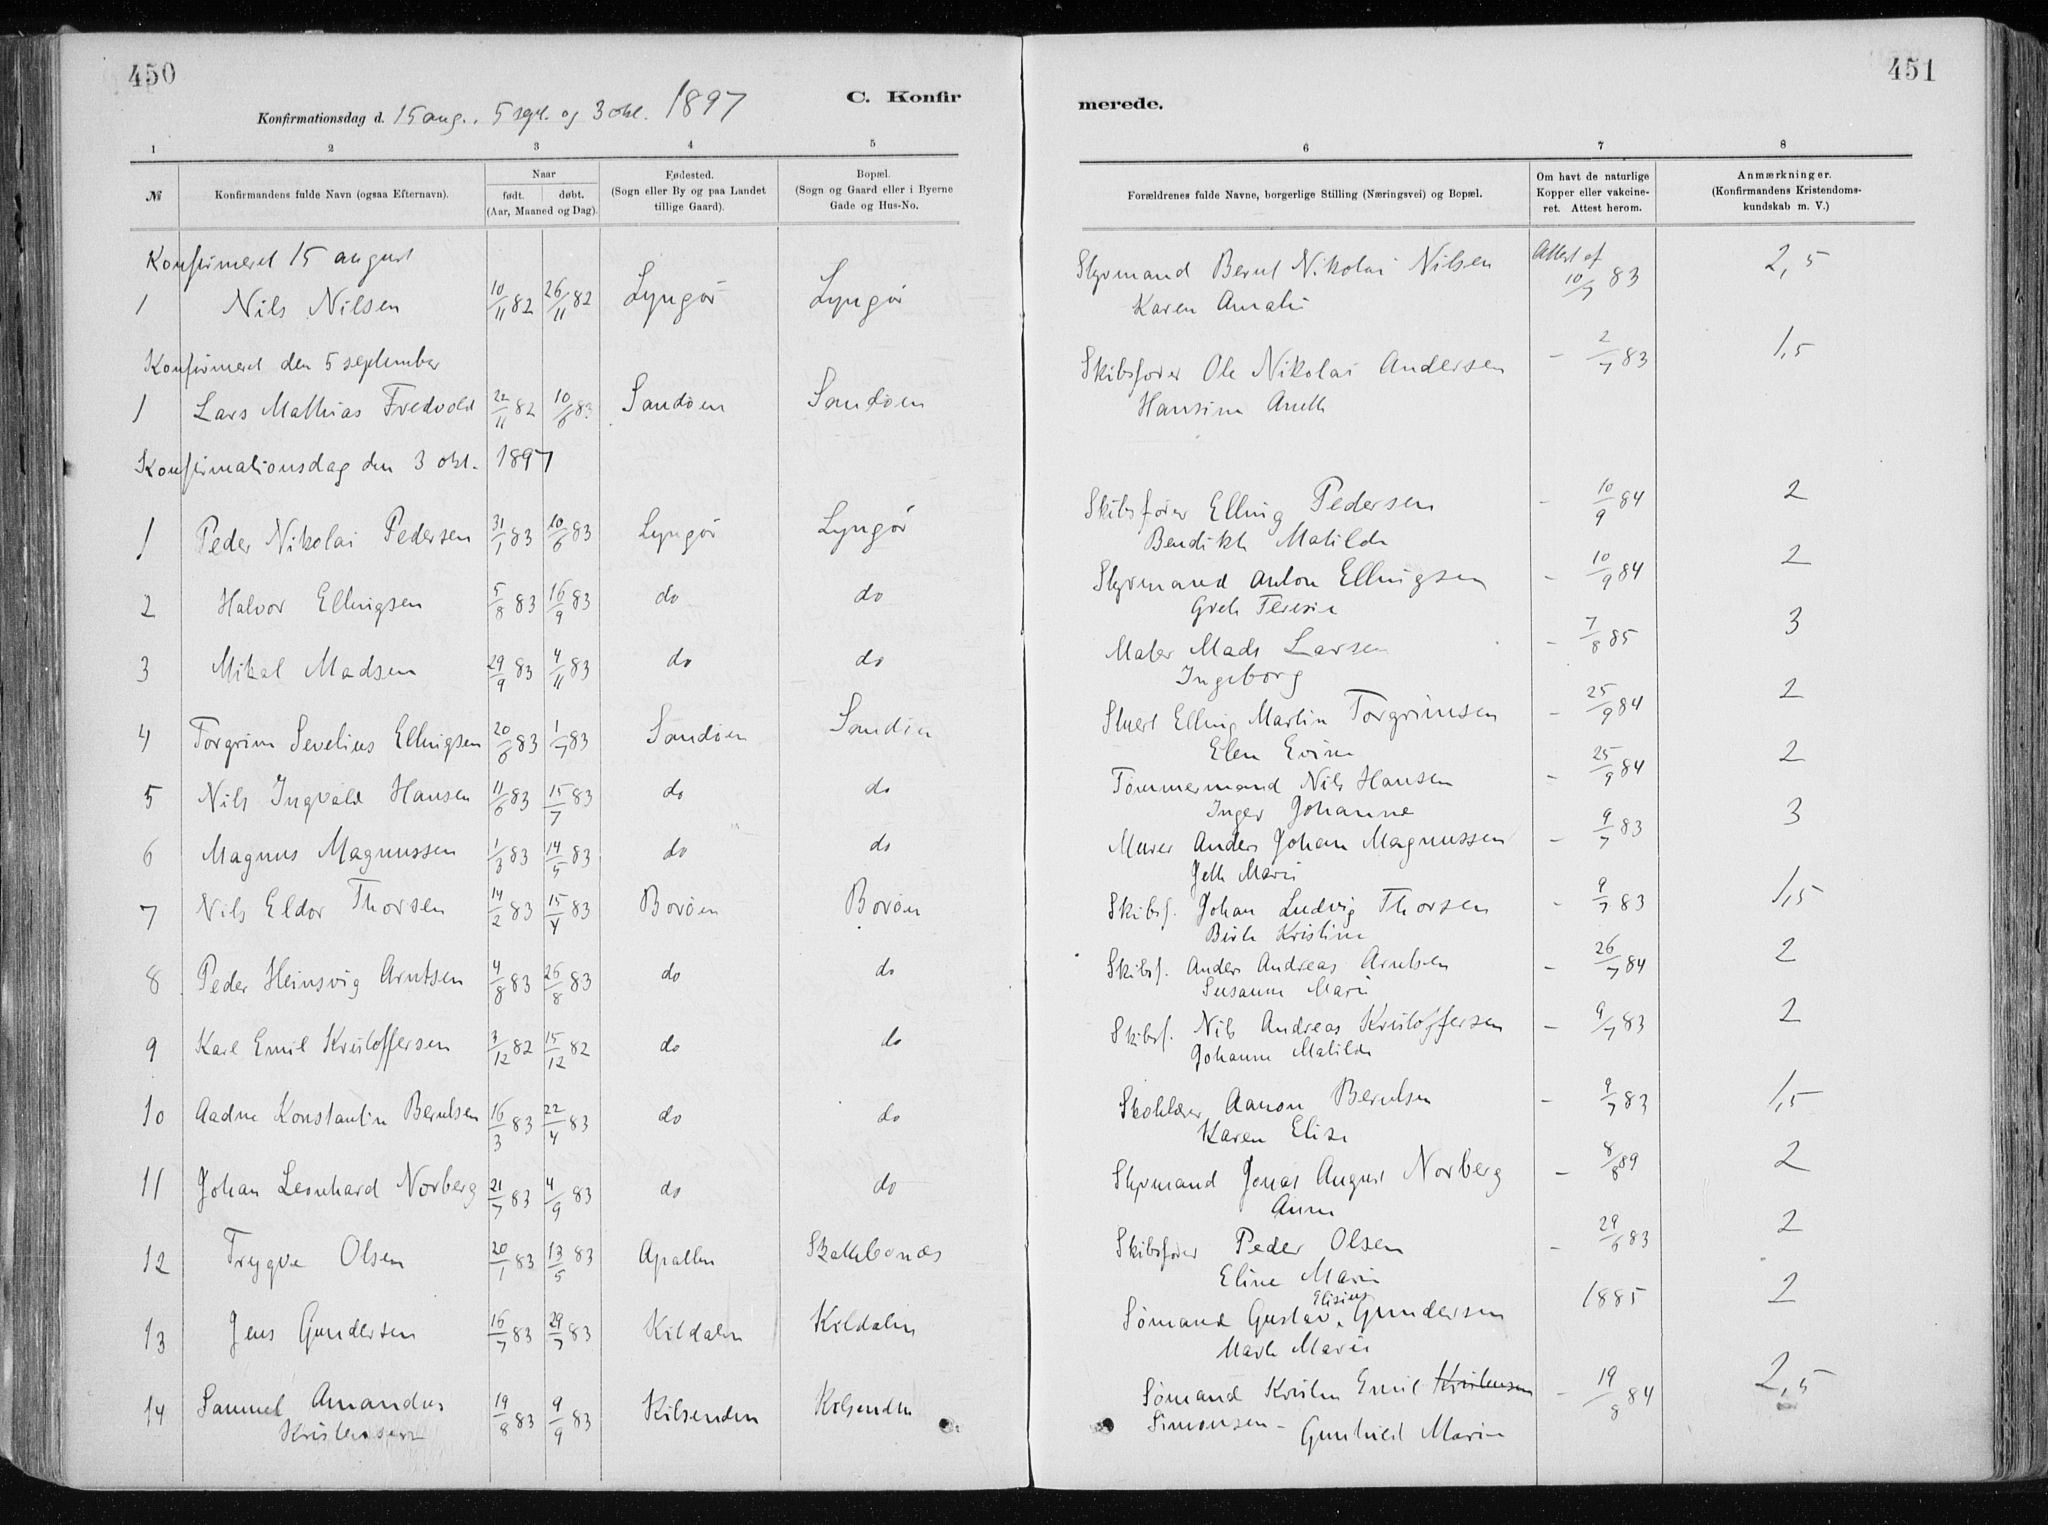 450
C. Konfir
Konfirmationsdag d. 15 aug., 5 sept. og 3 okt. 1897
1 2 3 4 5
№ Konfirmandens fulde Navn (ogsaa Efternavn). Naar født. døbt. (Aar, Maaned og Dag). Fødested. (Sogn eller By og paa Landet tillige Gaard). Bopæl. (Sogn og Gaard eller i Byerne Gade og Hus-No.
Konfirmeret 15 august
1 Nils Nilsen 10/11 82 26/11 82 Lyngör Lyngör
Konfirmeret den 5 september
1 Lars Mathias Fredvold 22/11 82 10/6 83 Sandöen Sandöen
Konfirmationsdag den 3 okt. 1897
1 Peder Nikolai Pedersen 31/1 83 10/6 83 Lyngör Lyngör
2 Halvor Ellingsen 5/8 83 16/9 83 do do
3 Mikal Madsen 29/9 83 4/11 83 do do
4 Torgrim Sevelius Ellingsen 20/6 83 1/7 83 Sandöen Sandöen
5 Nils Ingvald Hansen 11/6 83 15/7 83 do do
6 Magnus Magnussen 1/3 83 14/5 83 do do
7 Nils Eldor Thorsen 14/2 83 15/4 83 Boröen Boröen
8 Peder Heinsvig Arntsen 4/8 83 26/8 83 do do
9 Karl Emil Kristoffersen 3/12 82 15/12 82 do do
10 Aadne Konstantin Berntsen 16/3 83 22/4 83 do do
11 Johan Leonhard Norberg 21/7 83 4/9 83 do do
12 Trygve Olsen 20/1 83 13/5 83
13 Jens Gundersen 16/7 83 29/7 83 Kildalen Kildalen
14 Samuel Amandus 19/8 83 9/9 83 Kilsenden Kilsenden
Kristensen
451
merede.
6 7 8
Forældrenes fulde Navne, borgerlige Stilling (Næringsvei) og Bopæl. Om havt de naturlige Kopper eller vakcineret. Attest herom. Anmærkninger. (Konfirmandens Kristendomskundskab m. V.)
Styrmand Bernt Nikolai Nilsen Attest af 10/7 83 2,5
Karen Amalie
Skibsfører Ole Nikolai Andersen - 2/7 83 1,5
Hansine Aneth
Skibsfører Elling Pedersen - 10/9 84 2
Bendikte Matilde
Styrmand Anton Ellingsen - 10/9 84 2
Grete Teresie
Maler Mads Larsen - 7/8 85 3
Ingeborg
Stuert Elling Martin Torgrimsen - 25/9 84 2
Elen Evine
Tömmermand Nils Hansen - 25/9 84 2
Inger Johanne
Murer Anders Johan Magnussen - 9/7 83 3
Marie
Skibsf. Johan Ludvig Thorsen - 9/7 83 1,5
Birte Kristine
Skibsf. Anders Andreas Arntsen - 26/7 84 2
Susanne Marie
Skibsf. Nils Andreas Kristoffersen - 9/7 83 2
Johanne Matilde
Skolelærer Aanon Berntsen - 9/7 83 1,5
Karen Elise
Styrmand Jonas August Norberg - 8/8 89 2
Anne
Skibsfører Peder Olsen - 29/6 83 2
Eline Marie
Elisius
Sömand Gustav Gundersen 1885 2
Marte Marie
Sömand Kristen Emil Kristensen - 19/8 84 2,5
Simonsen - Gunhild Marie